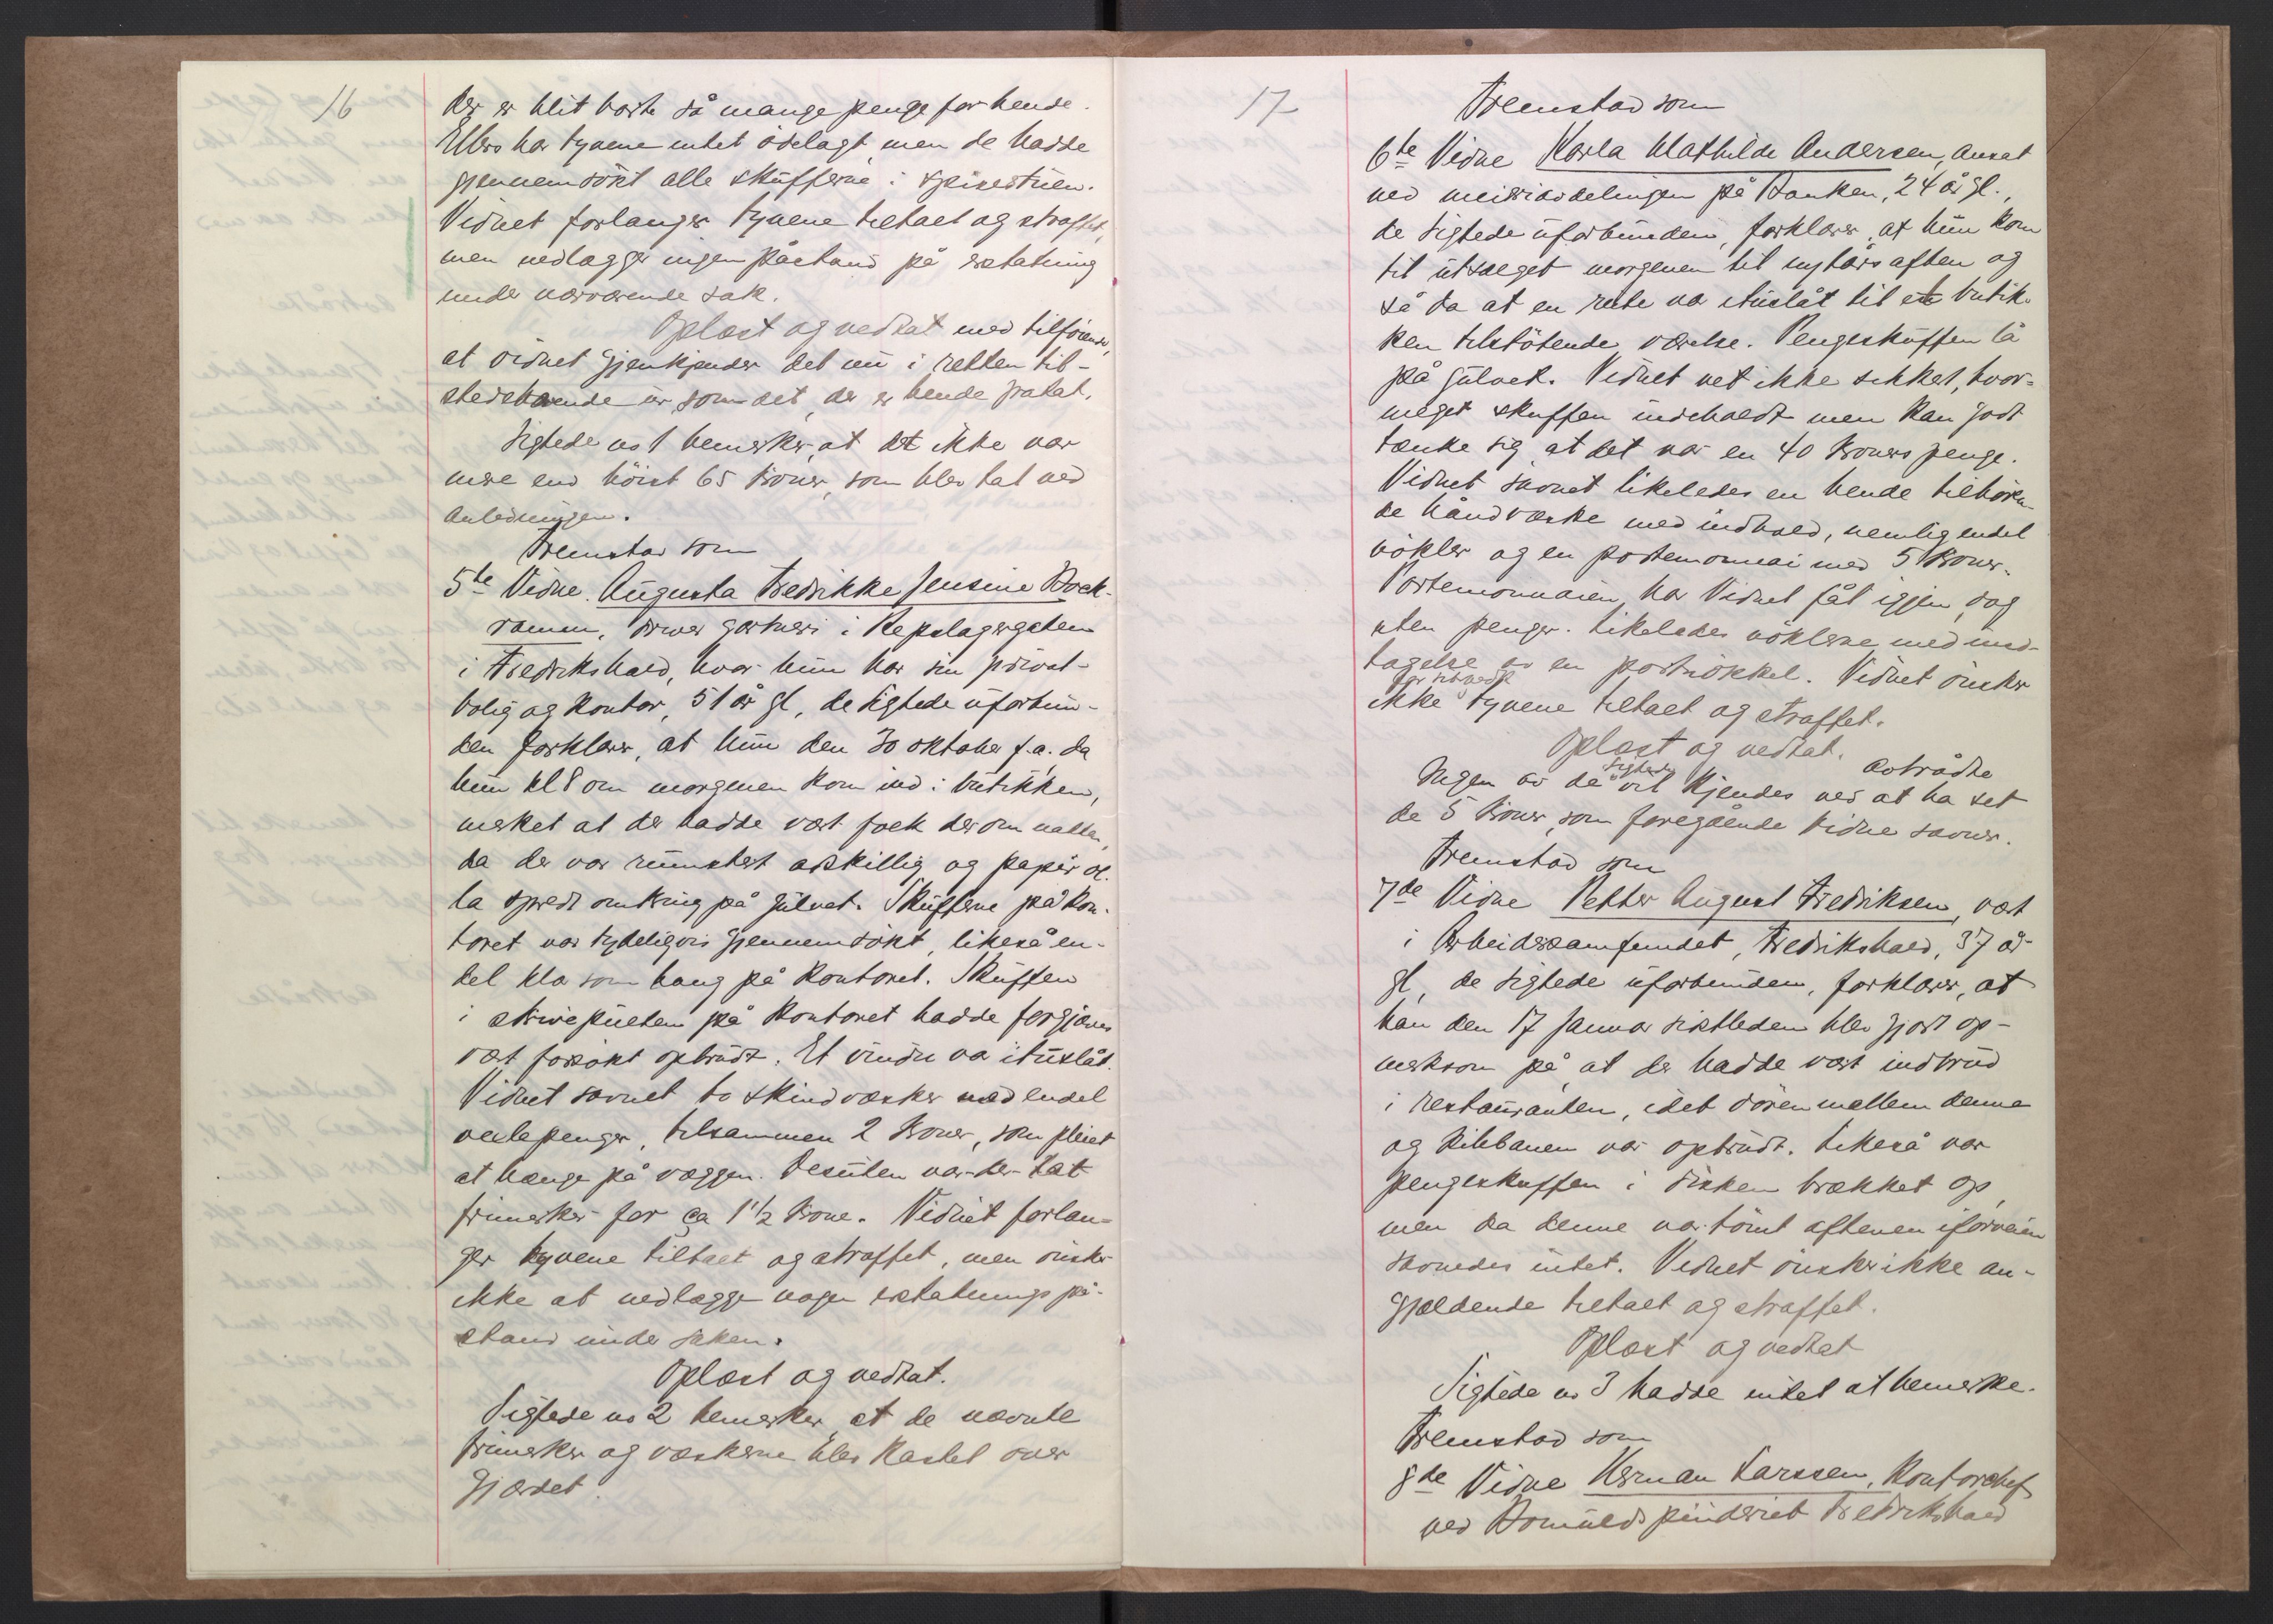 16
der er blit borte så mange penge for hende.
Ellers har tyvene intet ödelagt, men de hadde
gjennemsökt alle skufferne i spisestuen.
Vidnet forlanger tyvene tiltalt og straffet,
men nedlægger ingen påstand på erstatning
under nærværende sak.
Oplæst og vedtat med tilföiende,
at vidnet gjenkjender det nu i retten til-
stedeværende ur som det, der er hende fratat.
Sigtede no 1 bemerker, at det ikke var
mere end höist 65 kroner, som blev tat ved
anledningen.
Fremstod som
5te Vidne Augusta Fredrikke Jensine Bock-
ramm, driver gartneri i Repslagergaten
i Fredrikshald, hvor hun har sin privat-
bolig og kontor, 51 år gl, de sigtede uforbun-
den forklarer, at hun den 30 oktober f.a. da
hun kl 8 om morgenen kom ind i butikken,
merket at der hadde vært folk der om natten,
da der var rumstert adskillig og papir ol.
la spredt omkring på gulvet. Skufferne på kon-
toret var tydeligvis gjennemsökt, likeså en-
del klær som hang på kontoret. Skuffen
i skrivepulten på kontoret hadde forgjæves
vært forsökt opbrudt. Et vindu var ituslåt.
Vidnet savnet to skindvæsker med endel
vekslepenger, tilsammen 2 kroner, som pleiet
at hænge på væggen. Desuten var der tat
frimerker for ca 1 1/2 krone. Vidnet forlan-
ger tyvene tiltalt og straffet, men önsker
ikke at nedlægge nogen erstatningspå-
stand under saken.
Oplæst og vedtat.
Sigtede no 2 bemerker, at de nævnte
frimerker og væskerne blev kastet over
gjærdet.
17
Fremstod som
6te Vidne Karla Mathilde Andersen, ansat
ved meieriavdelingen på Banken, 24 år gl.,
de sigtede uforbunden, forklarer, at hun kom
til utsalget morgenen til nytårsaften og
så da at en rute var ituslåt til et butik-
ken tilstötende værelse. Pengeskuffen lå
på gulvet. Vidnet vet ikke sikkert, hvor-
meget skuffen indeholdt men kan godt
tænke sig, at det var en 40 kroners penge.
Vidnet savnet likeledes en hende tilhören-
de håndvæske med indhold, nemlig endel
nökler og en portemonnai med 5 kroner.
Portemonnaien har Vidnet fåt igjen, dog
uten penger. Likeledes nöklerne med und-
tagelse av en portnökkel. Vidnet önsker
ikke for sitvedk tyvene tiltalt og straffet.
Oplæst og vedtat. Avtrådte
Ingen av de sigtede vil kjendes ved at ha set
de 5 kroner, som foregående vidne savner.
Fremstod som
7de Vidne Petter August Fredriksen, vært
i Arbeidersamfundet, Fredrikshald, 37 år
gl, de sigtede uforbunden, forklarer, at
han den 17 januar sistleden blev gjort op-
merksom på, at der hadde vært indbrud
i restauranten, idet dören mellem denne
og kilebanen var opbrudt. Likeså var
pengeskuffen i disken brækket op,
men da denne var tömt aftenen iforveien
savnedes intet. Vidnet önsker ikke an-
gjældende tiltalt og straffet.
Oplæst og vedtat
Sigtede no 3 hadde intet at bemerke.
Fremstod som
8de Vidne Herman Larssen, kontorchef
ved Bomuldspinderiet Fredrikshald